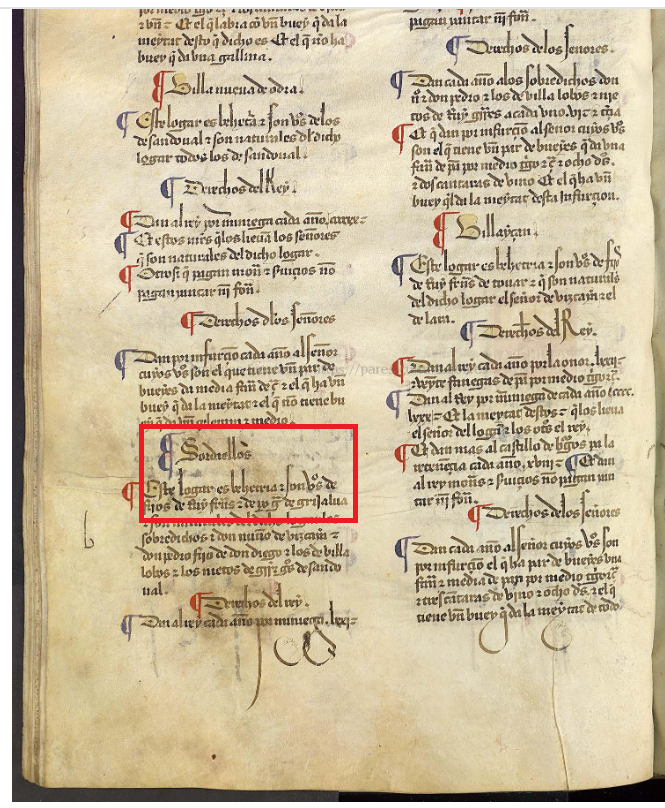 r vñ= Et el q̃ labra cõ vñ buey q̃ da la
meytat desto q̃ dicho es Et el q̃ no ha
buey q̃ da vna gallina.
Villa nueua de odra.
Este logar es behetˀa τ son vˢoˢ de los
de sandoual τ son naturales dl dicho
logar todos los de sandoual.
Derechos del Rey.
Dan al rey por martiniega cada año
Et estos mrs q̃ los lieuã los señores
q̃ son naturales del dicho logar.
Otrosi q̃ pagan mon τ seruicios no
pagan yantar ni fon.
Derechos dlos señores
Dan por infurçiõ cada año al señor
cuyos vˢoˢ son el que tiene vñ par de
bueyes da media de τ el q̃ ha vñ
buey q̃ da la meytat τ el q̃ nõ tiene bu
Sordiellos
Este logar es behetria τ son vˢoˢ de
fijos de Ruy frrs τ de po gˢ de grijalua
τ son naturales
sobredichos τ don nuño de vizcaya τ
don pedro fijo de don diego τ los de villa
lobos τ los nietos de de sando
ual.
Derechos del rey.
Dan al rey cada año por martiniega. lxxi=
pagan yantar ni fon.
Derechos de los señores.
Dan cada año alos sobredichos don
nº τ don pedro τ los de villa lobos τ nie
tos de Ruy a cada vno. vi τ
Et q̃ dan por infurçiõ al señor cuyos vˢoˢ
son el q̃ tiene vñ par de bueyes q̃ da vna
fan de pã por medio τ τ ocho ds.
τ dos cantaras de vino Et el q̃ ha vñ
buey q̃ da la meytat desta infurçion.
Villayçan.
Este logar es behetria τ son vˢoˢ de
de Ruy frrs de touar τ q̃ son naturales
del dicho logar el señor de vizcaya τ el
de lara.
Derechos del Rey.
Dan al rey cada año por la onor. lxxi=
τ veynte fanegas de pã por medio
Dan al Rey por martiniega de cada año
Et la meytat destos= q̃ los lieua
el señor del logar τ los otˢ el rey.
Et dan mas al castillo de burgos pa la
retenençia cada año. xviij= Et dan
al rey moñ τ seruicios no pagan yan
tar ni fon.
Derechos de los señores
Dan cada año al señor cuyos vˢoˢ son
por infurçion el q̃ ha par de bueyes vna
fan τ media de pan por medio
τ tres cantaras de vino τ ocho ds. τ el q̃
tiene vñ buey q̃ da la meytat de todo